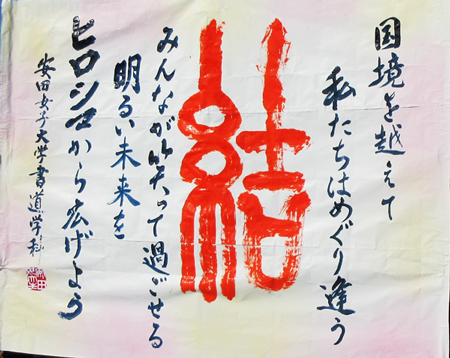 国境を越えて
私たちはめぐり逢う
結
みんなが笑って過ごせる
明るい未来を
ヒロシマから広げよう
安田女子大学書道学科